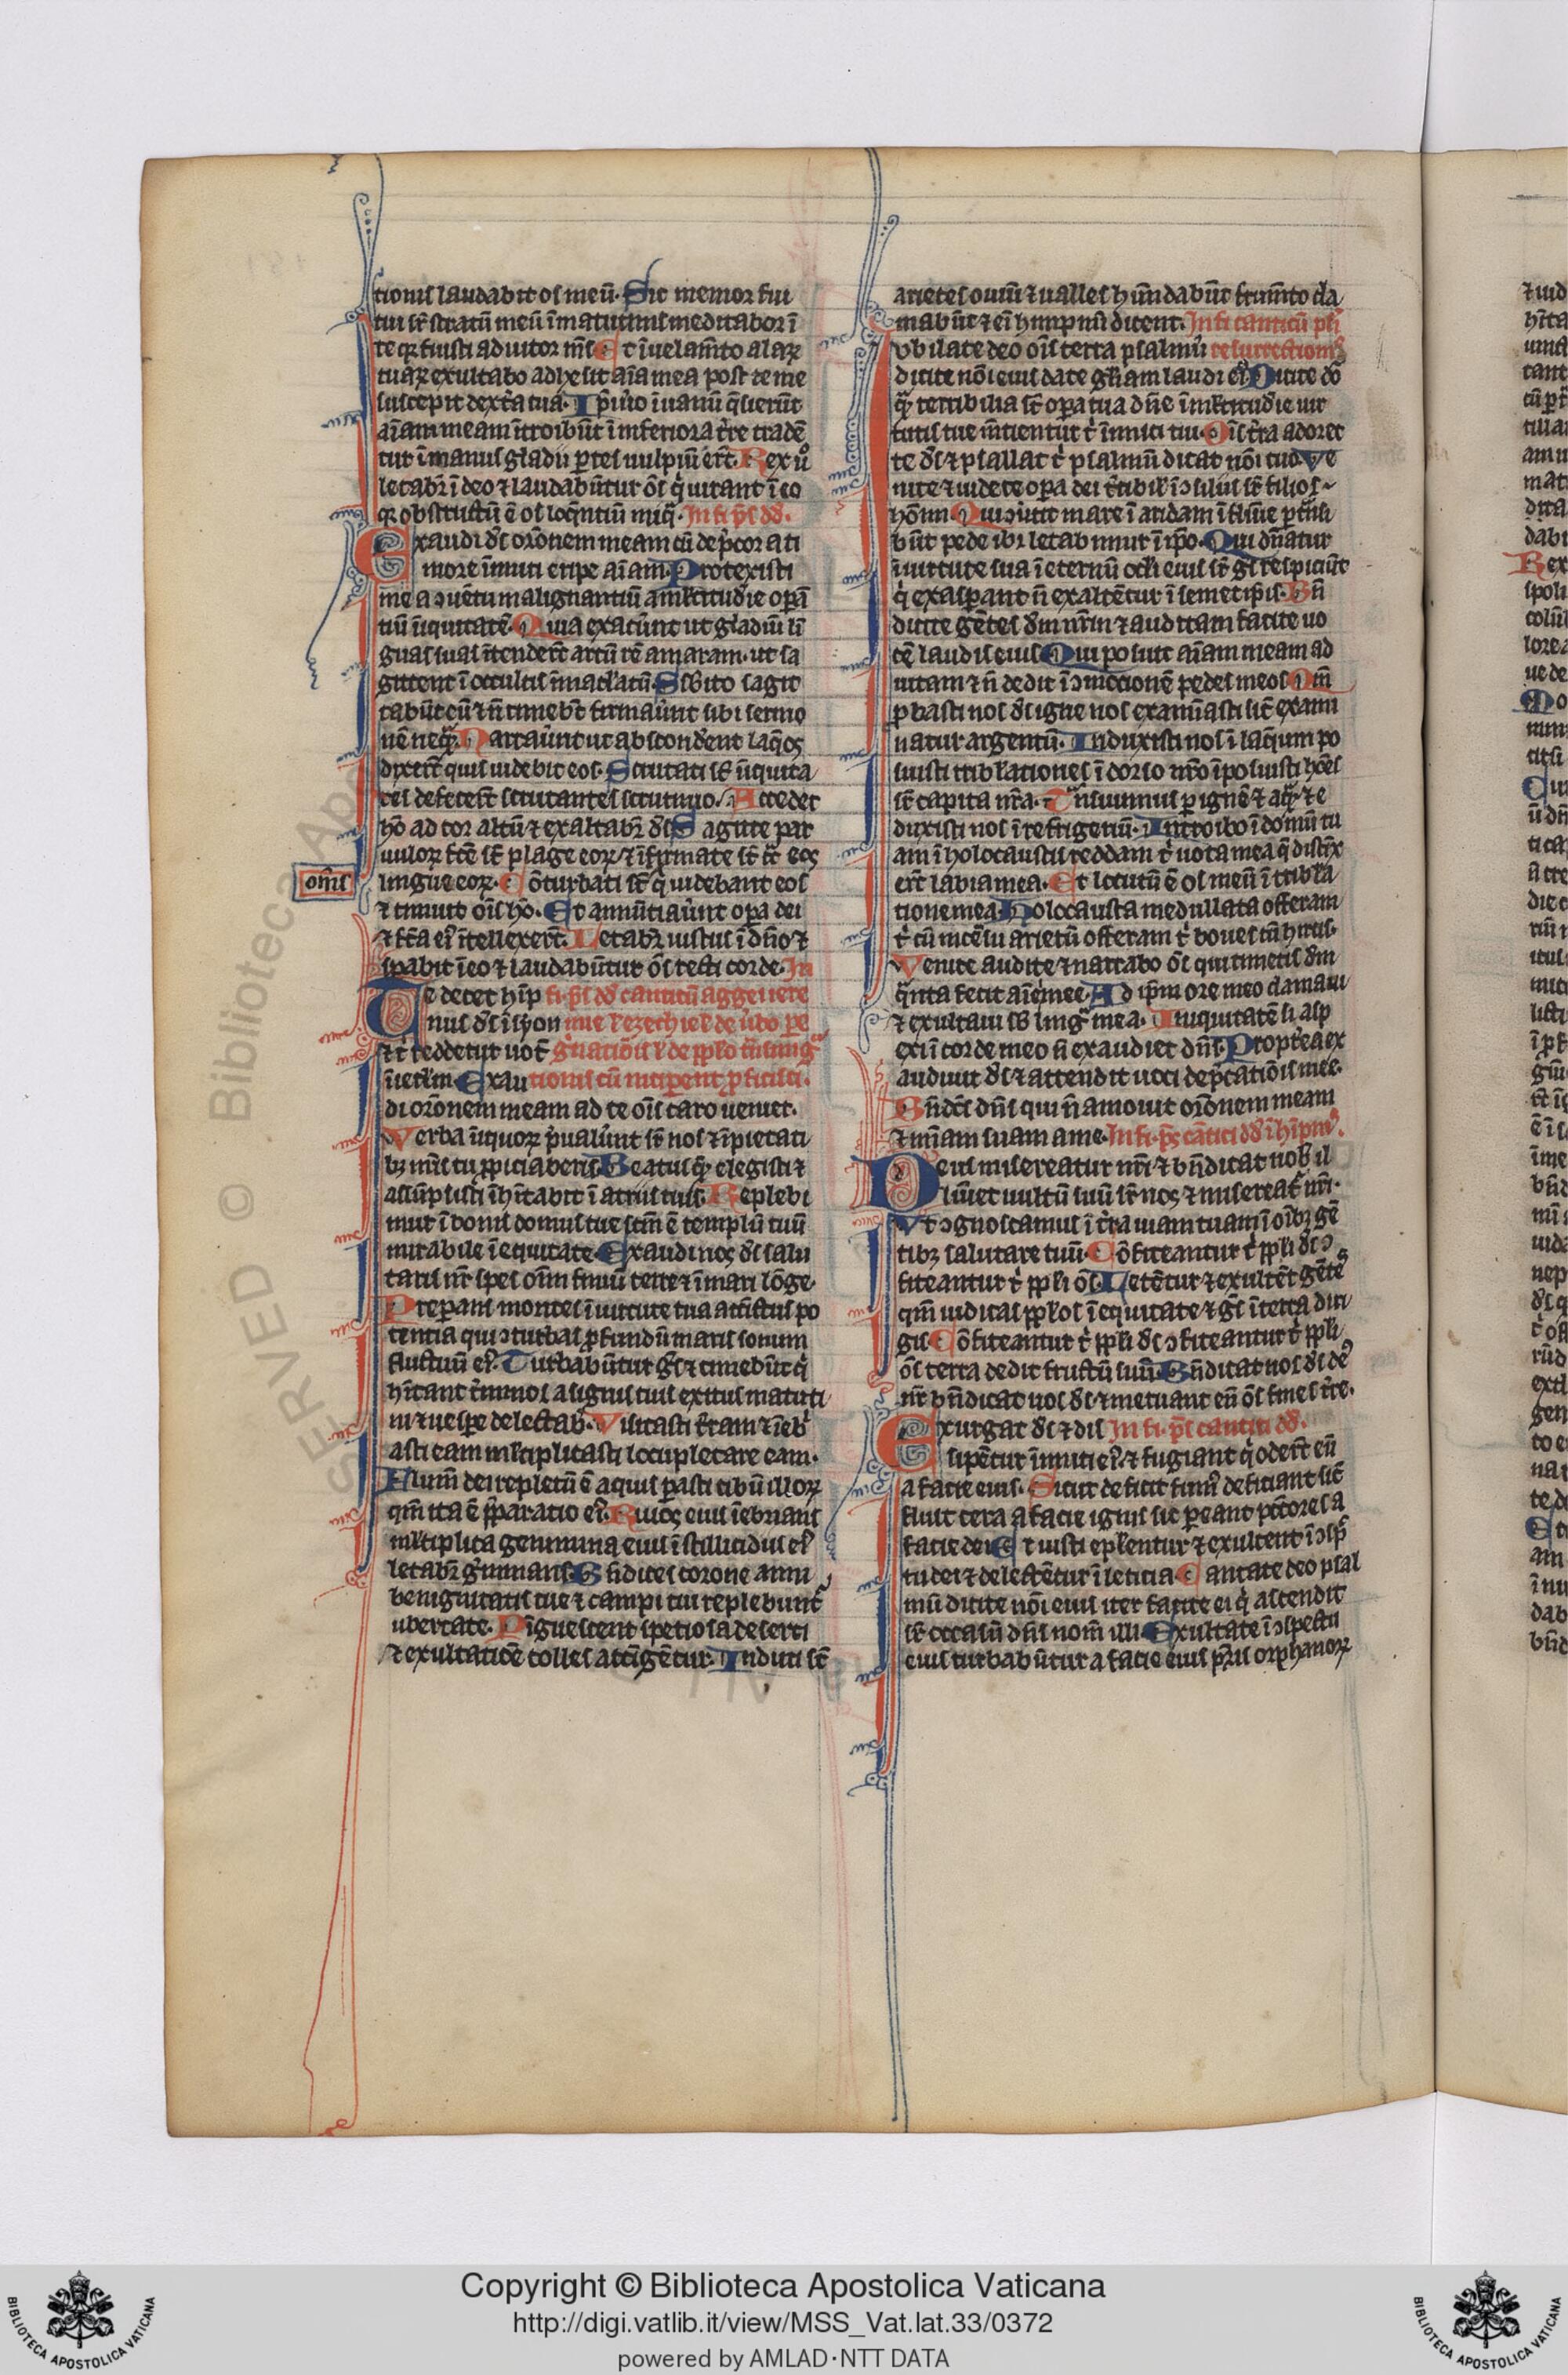 tionis laudabit os meū. Sic memor fui
tui sr̄ stratū meū ī matutinis meditabor ī
te qꝛ fuisti adiutor m̄s Et ī uelam̄to alaꝝ
tuaꝝ exultabo adhesit aīa mea post te me
suscepit dext̄a tua. Ip̄i ūo ī uanū q̄sierūt
aīam meam ītroibūt ī inferiora t̄re tradē
tur ī manus gladii ꝑtes uulpiū erūt. Rex ū
letabꝛ̄ ī deo ⁊ laudabūtur ōs q̇ iurant ī eo
qꝛ obstructū ē os loq̄ntiū iniq̄. In fi p̄s dd.
Exaudi ds̄ orōnem meam cū dep̄cor a ti
more inimici eripe aīam. Protexisti
me a ꝯuētu malignantiū a ml̄titudīe oꝑā
tiū īiquitatē. Quia exacūnt ut gladiū lī
guas suas ītenderūt arcū rē amaram. ut sa
gittent ī occultis īmaclatū. Sᵬito sagit
tabūt eū ⁊ n̄ timebt̄ firmaūnt sibi sermo
nē neq̄ꝫ Narraūnt ut absconderent laq̄os
dixert̄ quis uidebit eos. Scrutati st̄ īiquita
tes defecert̄ scrutantes scrutinio. Accedet
hō ad cor altū ⁊ exaltabꝛ̄ ds̄ Sagitte par
uuloꝝ fc̄e st̄ plage eoꝝ ⁊ īfirmate st̄ ꝯt̄ eos
om̄s
lingue eoꝝ. Cōturbati st̄ q̇ uidebant eos
⁊ timuit oīs hō. Et annūtiaūnt oꝑa dei
⁊ fc̄a eiꝰ ītellexert̄. Letabꝛ̄ iustus ī dn̄o ⁊
sꝑabit ī eo ⁊ laudabūtur ōs recti corde. In
Te decet hȳp fi. p̄s dd̄ canticū aggei iere
nus ds̄ ī syon mie ł ezechiel de ūbo ꝑe
⁊ t̄ reddetur uot̄
ī ierl̄m Exau tionis cū inciꝑent ꝓficisci.
di orōnem meam ad te oīs caro ueniet.
Verba īiquoꝝ p̄ualūnt sr̄ nos ⁊ īpietati
bꝫ nr̄is tu ꝓpiciaberis. Beatus q̄ꝫ elegisti ⁊
assūpsisti īhītabit ī atriis tuis. Replebi
mur ī bonis domus tue scm̄ ē templū tuū
mirabile ī equitate. Exaudi nos ds̄ salu
taris nr̄ spes oīm finiū terre ⁊ ī mari lōge.
Preꝑans montes ī uirtute tua accīctus po
tentia qui ꝯturbas ꝓfundū maris sonum
fluctuū eiꝰ. Turbabūtur gēs ⁊ timebūt q̇
hītant t̄minos a signis tuis exitus matuti
ni ⁊ uesꝑe delectabꝛ̄. Visitasti t̄ram ⁊ īebꝛ̄
asti eam ml̄tiplicasti locupletare eam.
Flum̄ dei repletū ē aquis ꝑasti cibū illoꝝ
qm̄ ita ē p̄paratio eiꝰ. Riuos eius īebrians
ml̄tiplica genimina eius ī stillicidiis eiꝰ
letabꝛ̄ gīminans. Bn̄dices corone anni
benignitatis tue ⁊ campi tui replebunt̄
ubertate. Pīguescent speciosa deserti
⁊ exultatiōe colles accīgētur. Induti st̄
arietes ouiū ⁊ ualles hūdabūt frum̄to cla
mabūt ⁊ eī hȳpnū dicent. In fi canticū psł
Iubilate deo oīs terra psalmū resurrectionis
dicite nōi eius date gł̄iam laudi eiꝰ. Dicite do
q̄ꝫ terribilia st̄ oꝑa tua dn̄e ī ml̄titudīe uir
tutis tue m̄tientur t̄ īimici tui. Oīs t̄ra adoret
te ds̄ ⁊ psallat t̄ psalmū dicat nōi tuo. Ve
nite ⁊ uidete oꝑa dei t̄ribił ī ꝯsiliis sr̄ filios
hōinū. Qui ꝯūtit mare ī aridam ī flumīe ꝑt̄nsi
būt pede ibi letabimur ī ip̄o. Qui dn̄atur
ī uirtute sua ī eternū oc̄li eius sr̄ gēs respiciūt
q̇ exasꝑant n̄ exaltētur ī semetip̄is. Bn̄
dicite gētes dm̄ nr̄m ⁊ auditam facite uo
cē laudis eius Qui posuit aīam meam ad
uitam ⁊ n̄ dedit ī ꝯmotionē pedes meos. Qm̄
ꝓbasti nos ds̄ igne nos examīasti sic̄ exami
natur argentū. Induxisti nos ī laq̄um po
suisti tribl̄ationes ī dorso nr̄o īposuisti hōies
sr̄ capita nr̄a. Trāsiuimus ꝑ ignē ⁊ aq̄ꝫ ⁊ e
duxisti nos ī refrigeriū. Introibo ī domū tu
am ī holocaustis reddam t̄ uota mea q̄ distīx
ert̄ labia mea. Et locutū ē os meū ī tribl̄a
tione mea. Holocausta medullata offeram
t̄ cū incēsu arietū offeram t̄ boues cū hircis.
Venite audite ⁊ narrabo ōs qui timetis dm̄
q̄nta fecit aīe mee. Ad ip̄m ore meo clamaui
⁊ exultaui sᵬ lingᵃ mea. Iniquitatē si asp
exi ī corde meo n̄ exaudiet dn̄s. Propt̄ea ex
audiuit ds̄ ⁊ attendit uoci dep̄catiōis mee.
Bn̄dc̄s dn̄s qui n̄ amouit orōnem meam
⁊ mīam suam a me. In fi. p̄s cātici dd̄ ī hȳpnis.
Deus misereatur nr̄i ⁊ bn̄dicat nob̄ il
lūiet uultū suū sr̄ nos ⁊ misereat̄ nr̄i.
Vt ꝯgnoscamus ī t̄ra uiam tuam ī oībꝫ gē
tibꝫ salutare tuū. Cōfiteantur t̄ ppl̄i ds̄ ꝯ
fiteantur t̄ ppl̄i ōs. Letētur ⁊ exultēt gētes
qm̄ iudicas ppl̄os ī equitate ⁊ gēs ī terra diri
gis. Cōfiteantur t̄ ppl̄i ds̄ ꝯfiteantur t̄ ppl̄i
ōs terra dedit fructū suū. Bn̄dicat nos ds̄ dēs
nr̄ bn̄dicat nos ds̄ ⁊ metuant eū ōs fines t̄re.
Exurgat ds̄ ⁊ dis In fi. p̄s cantici dd.
sipētur īimici eiꝰ ⁊ fugiant q̇ odert̄ eū
a facie eius. Sicut deficit fumꝰ deficiant sic̄
fluit cera a facie ignis sic ꝑeant pctōres a
facie dei Et iusti epl̄entur ⁊ exultent ī ꝯsp̄
tu dei ⁊ delectētur ī leticia. Cantate deo psal
mū dicite nōi eius iter facite ei q̇ ascendit
sr̄ occasū dn̄s nom̄ illi Exultate ī ꝯspectu
eius turbabūtur a facie eius pr̄is orphanoꝝ
Copyright © Biblioteca Apostolica Vaticana
http://digi.vatlib.it/view/MSS_Vat.lat.33/0372
powered by AMLAD·NTT DATA
BIBLIOTECA APOSTOLICA VATICANA
BIBLIOTECA APOSTOLICA VATICANA